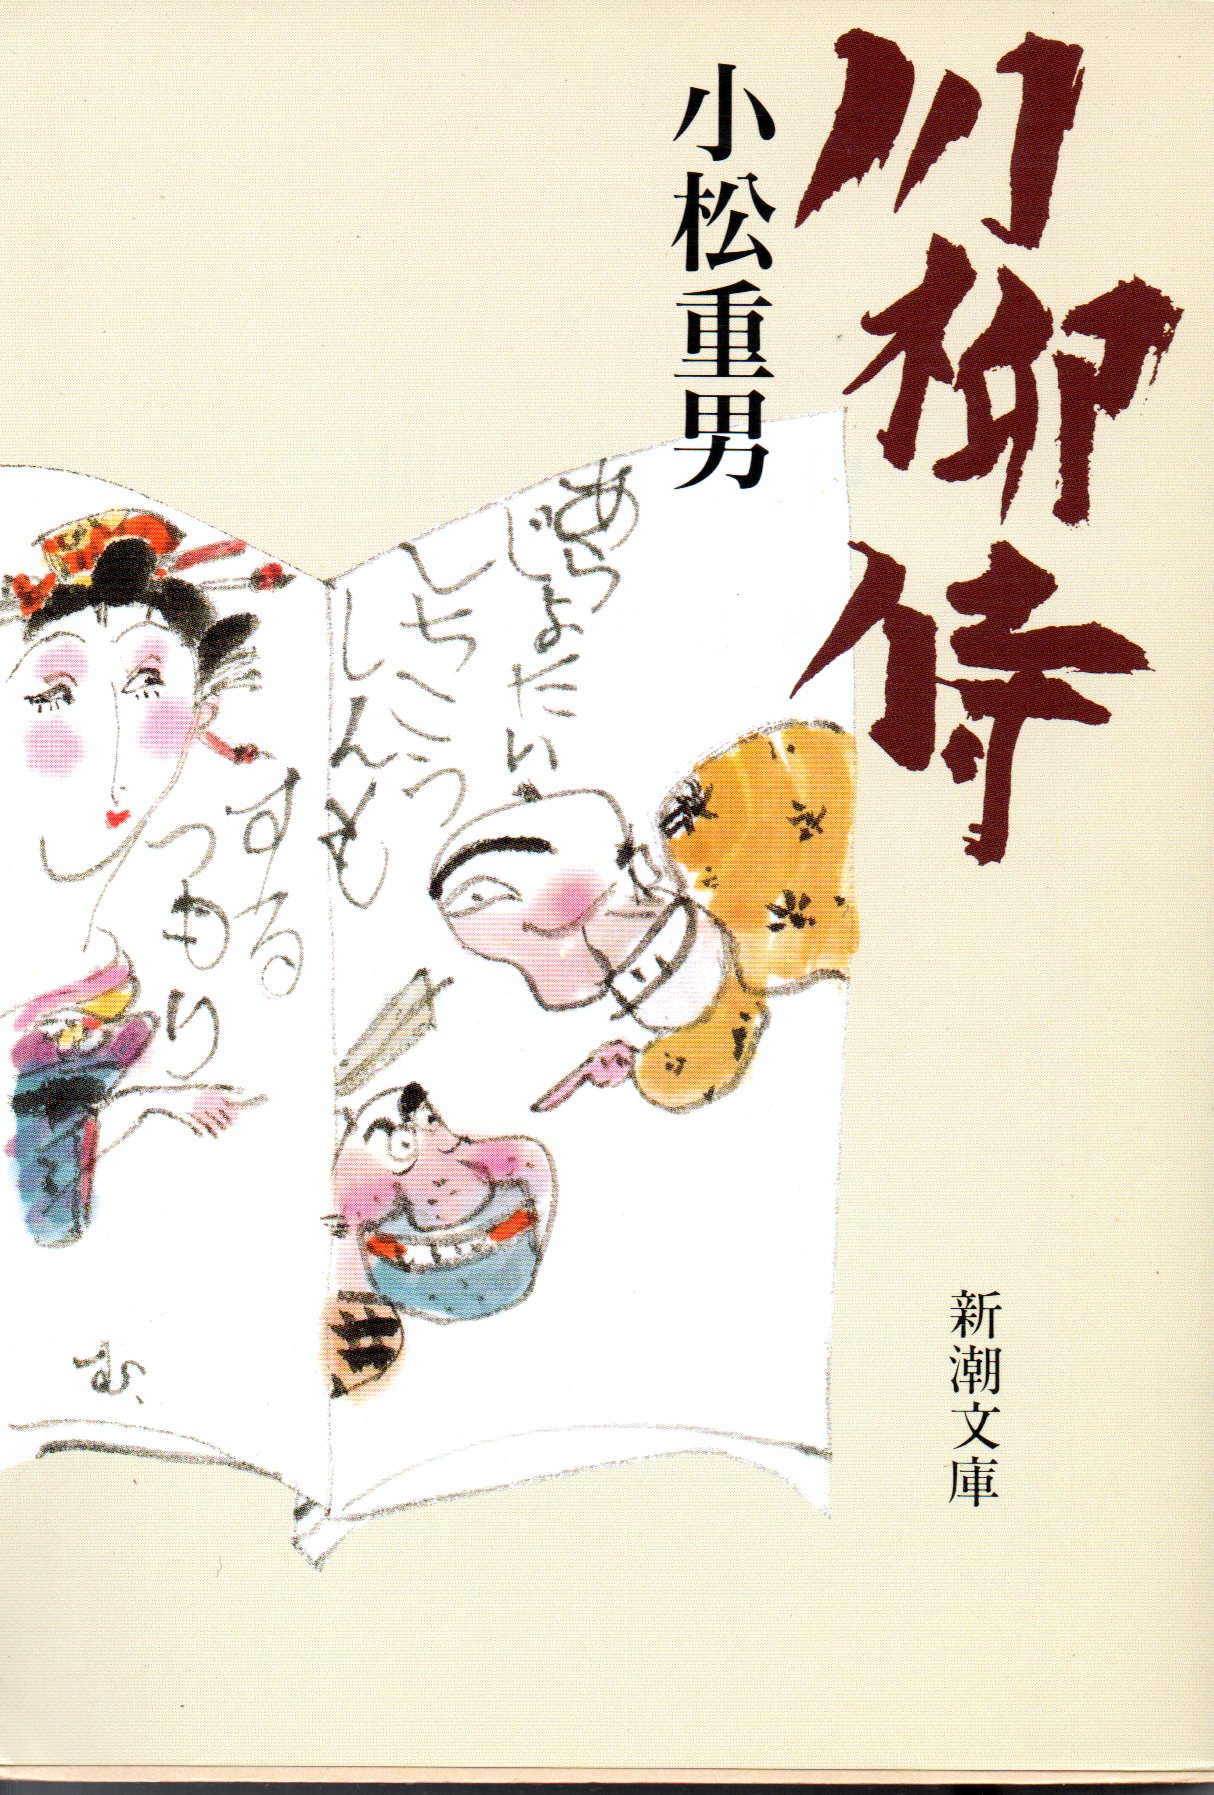 川柳侍
小松重男
あら
じょたい
しちこう
しんも
する
つもり
む
新潮文庫